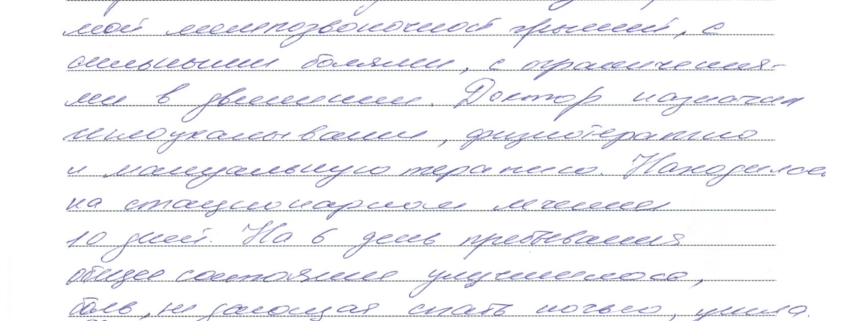 мой межпозвоночной грыжей, с
сильными болями, с ограничения-
ми в движении. Доктор назначил
иглоукалывание, физиотерапию
и мануальную терапию. Находился
на стационарном лечении
10 дней. На 6 день пребывания
общее состояние улучшилось,
боль, не дающая спать ночью, ушла.